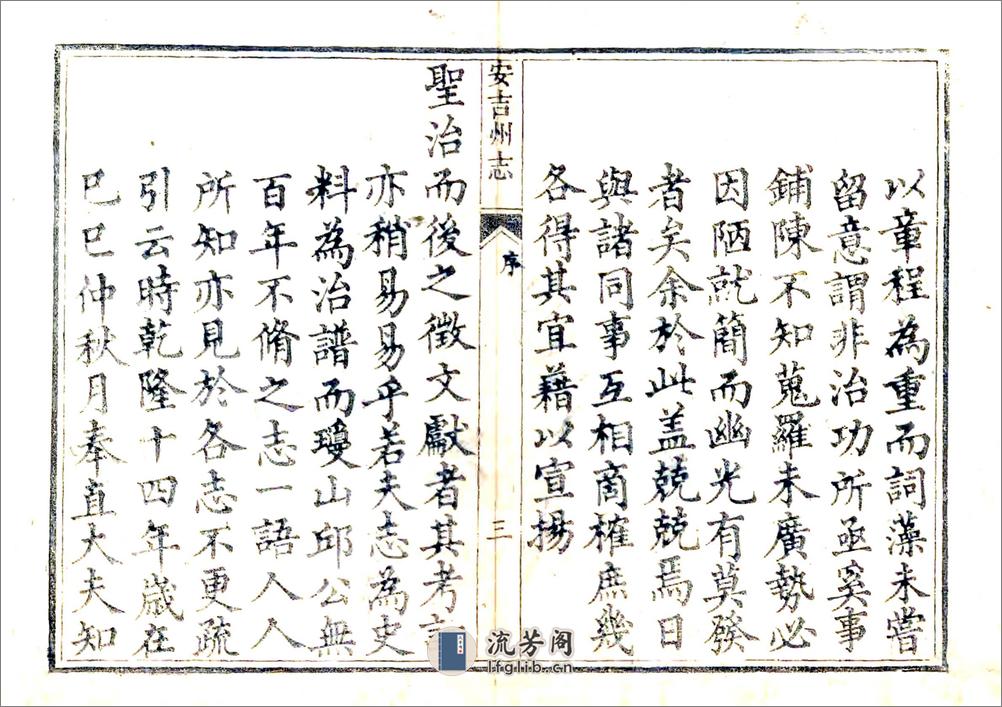 以章程為重而詞藻未嘗
留意謂非治功所亟奚事
鋪陳不知蒐羅未廣勢必
因陋就簡而幽光有莫發
者矣余於此盖兢兢焉日
與諸同事互相商榷庶幾
各得其宜藉以宣揚
安吉州志
序
三
聖治而後之徵文獻者其考
亦稍易易乎若夫志為史
料為治譜而瓊山邱公無
百年不脩之志一語人人
所知亦見於各志不更疏
引云時乾隆十四年歲在
己巳仲秋月奉直大夫知
流芳阁
lfglib.cn